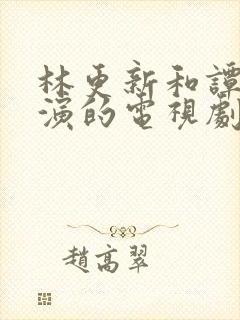 林更新和譚
演的電視劇
趙高翠